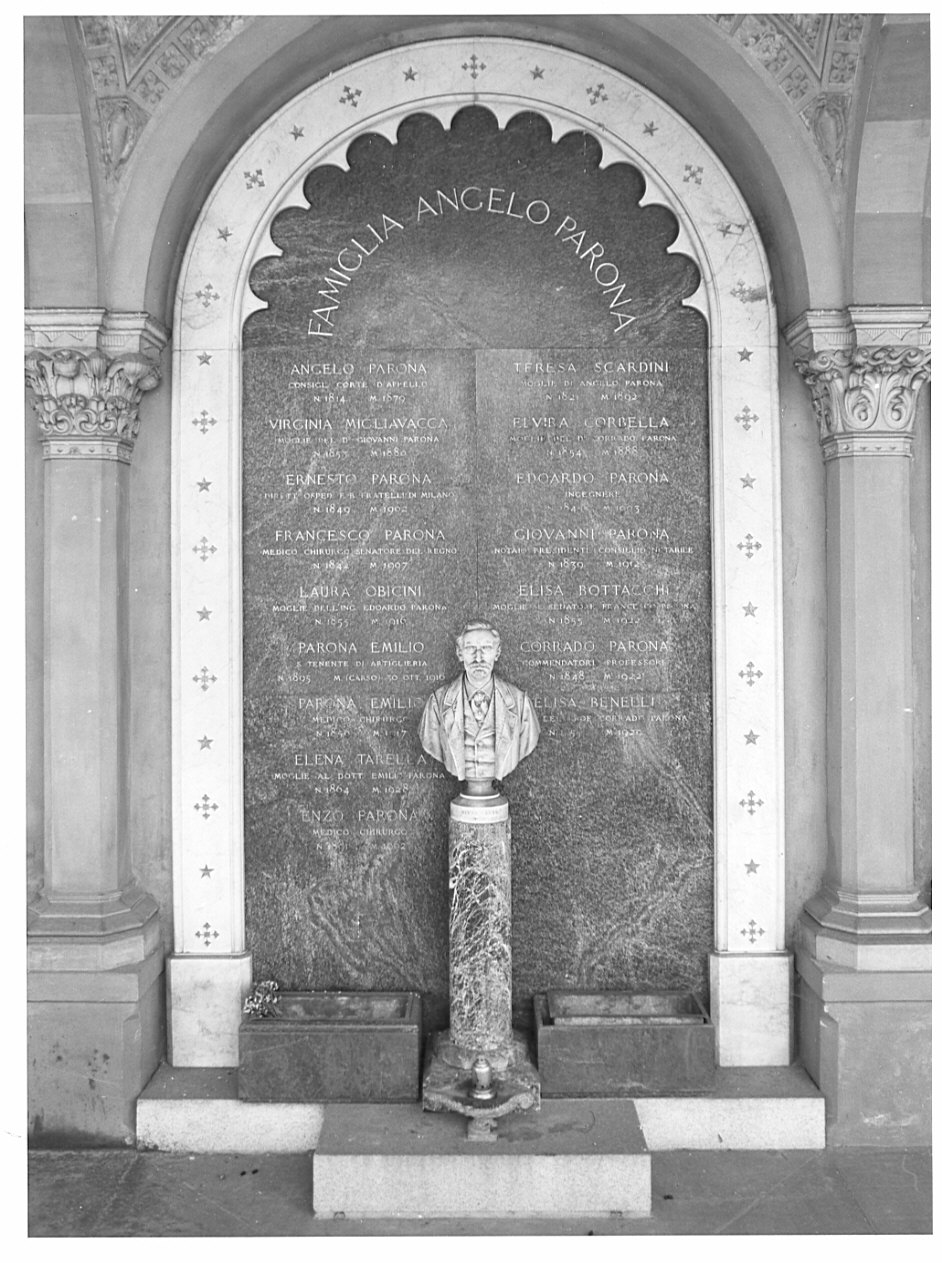 FAMIGLIA ANGELO PARONA
ANGELO PARONA
CONSIGL. CORTE D'APPELLO
N. 1814 M. 1879
VIRGINIA MIGLIAVACCA
MOGLIE DEL Dr GIOVANNI PARONA
N. 1857 M. 1880
ERNESTO PARONA
DIRETT. OSPED. F. B. FRATELLI DI MILANO
N. 1849 M. 1902
FRANCESCO PARONA
MEDICO CHIRURGO SENATORE DEL REGNO
N. 1842 M. 1907
LAURA OBICINI
MOGLIE DELL'ING. EDOARDO PARONA
N. 1855 M. 1916
PARONA EMILIO
S. TENENTE DI ARTIGLIERIA
N. 1895 M. (CARSO) 30 OTT. 1916
PARONA EMILIO
MEDICO CHIRURGO
ELENA TARELLA
MOGLIE AL DOTT. EMILIO PARONA
N. 1864 M. 1928
ENZO PARONA
MEDICO CHIRURGO
TERESA SCARDINI
MOGLIE DI ANGELO PARONA
N. 1821 M. 1892
ELVIRA CORBELLA
MOGLIE DEL Dr CORRADO PARONA
N. 1854 M. 1888
EDOARDO PARONA
INGEGNERE
M. 1903
GIOVANNI PARONA
NOTAIO PRESIDENTE CONSIGLIO NOTARILE
N. 1839 M. 1912
ELISA BOTTACCHI
MOGLIE SENATORE
N. 1855 M. 1922
CORRADO PARONA
COMMENDATORE PROFESSORE
N. 1848 M. 1922
ELISA BENELLI
CORRADO PARONA
M. 1926